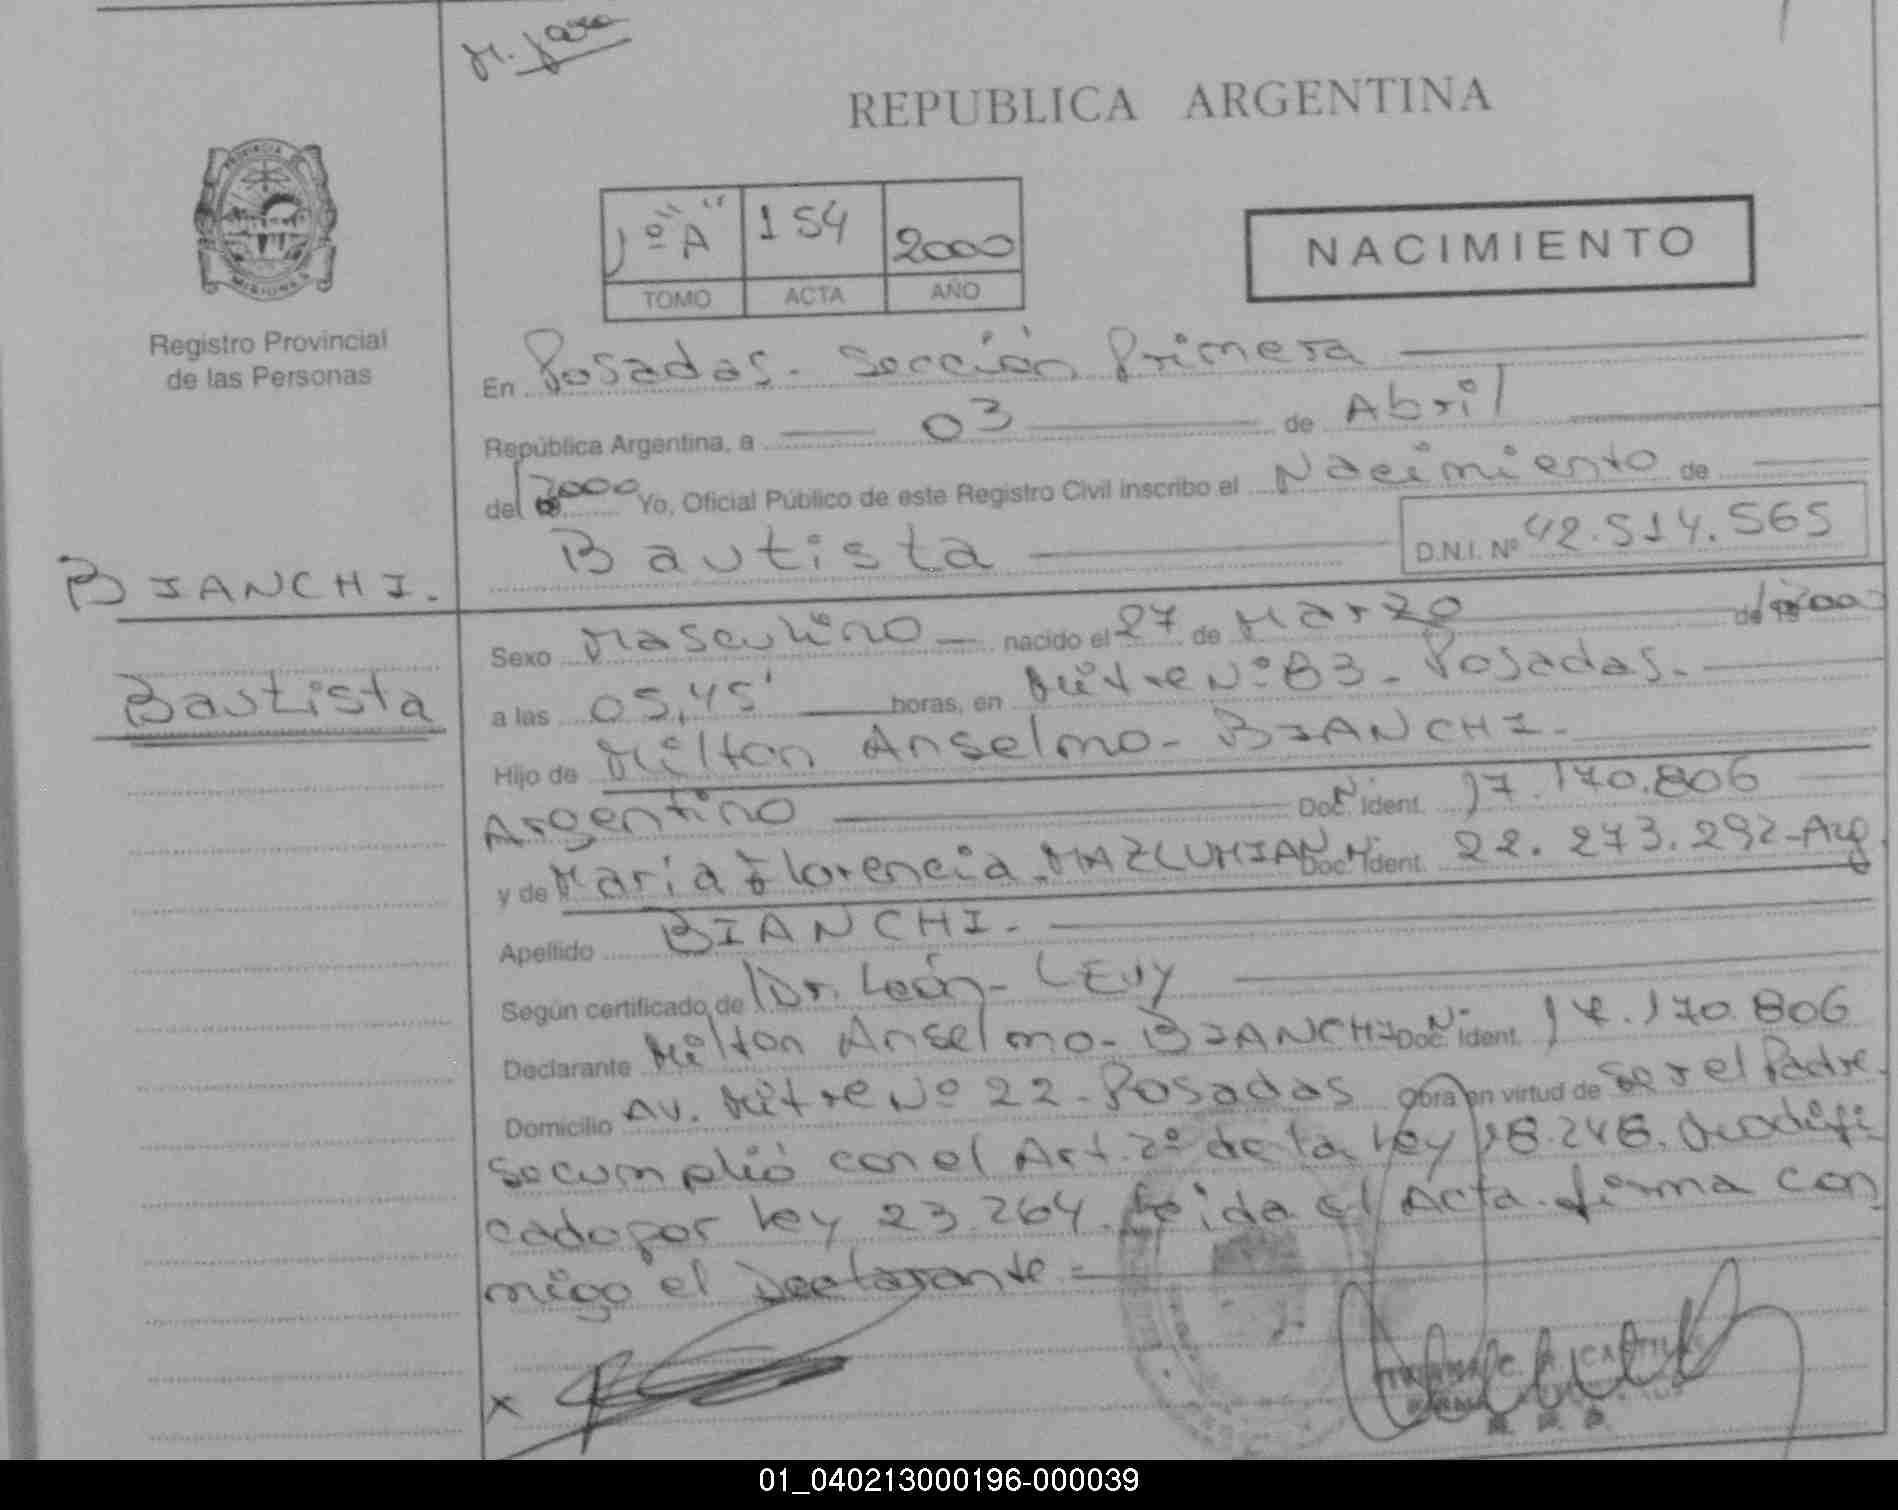 M. Jara
REPUBLICA ARGENTINA
PROVINCIA DE
MISIONES
Registro Provincial
de las Personas
1º "A" 154 2000
TOMO ACTA AÑO
NACIMIENTO
En Posadas. Sección Primera
República Argentina, a 03 de Abril
del 2000 Yo, Oficial Público de este Registro Civil inscribo el Nacimiento de
Bautista D.N.I. Nº 42.514.565
BIANCHI.
Bautista
Sexo Masculino nacido el 27 de Marzo de 2000
a las 05,45' horas, en Mitre Nº 83 - Posadas.
Hijo de Milton Anselmo - BIANCHI.
Argentino Doc. Ident. 17.170.806
y de María Florencia MAZLUMIAN Doc. Ident. 22.273.292 - Arg
Apellido BIANCHI.
Según certificado de Dr. León - LEVY
Declarante Milton Anselmo - BIANCHI Doc. Ident. 17.170.806
Domicilio Av. Mitre Nº 22 - Posadas obra en virtud de Ser el Padre.
se cumplió con el Art. 2º de la Ley 18.248. Modifi
cado por Ley 23.264. Leida el Acta. firma con
migo el Declarante =
x
01_040213000196-000039